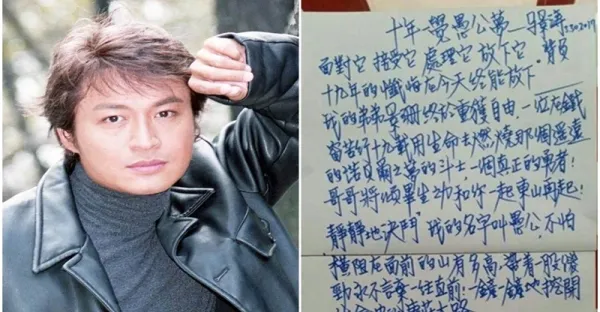 十年一覺愚公夢—
面對它 接受它 處理它 放下它.
十九年的懺悔在今天終能放下
我的弟弟終於重獲自由一位在鐵
窗苦行十九載用生命去燃燒那個遙遠
的諾貝爾之夢的斗士一個真正的勇者!
哥哥將傾畢生功力和你一起東山再起!
靜靜地決鬥,我的名字叫愚公,不怕
橫阻在面前的山有多高,帶著一股傻
勁永不言棄一往直前,一鏟一鏟地挖開